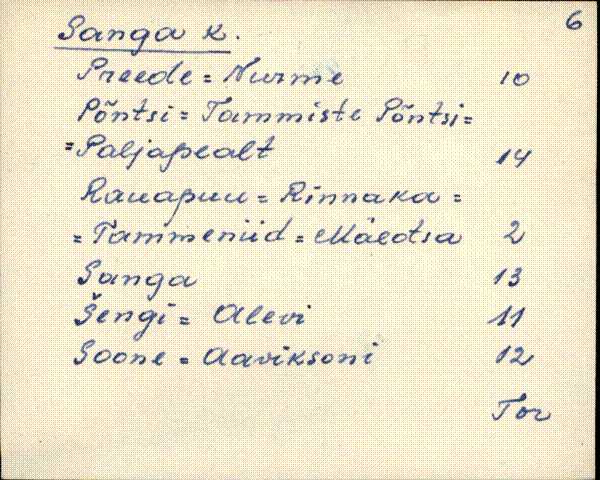 6
Sanga k.
Preede = Nurme 10
Põntsi = Tammiste Põntsi =
= Paljapealt 14
Rauapuu = Rinnaka =
= Tammeniid = Mäeotsa 2
Sanga 13
Šengi = Alevi 11
Soone = Aaviksoni 12
Tor